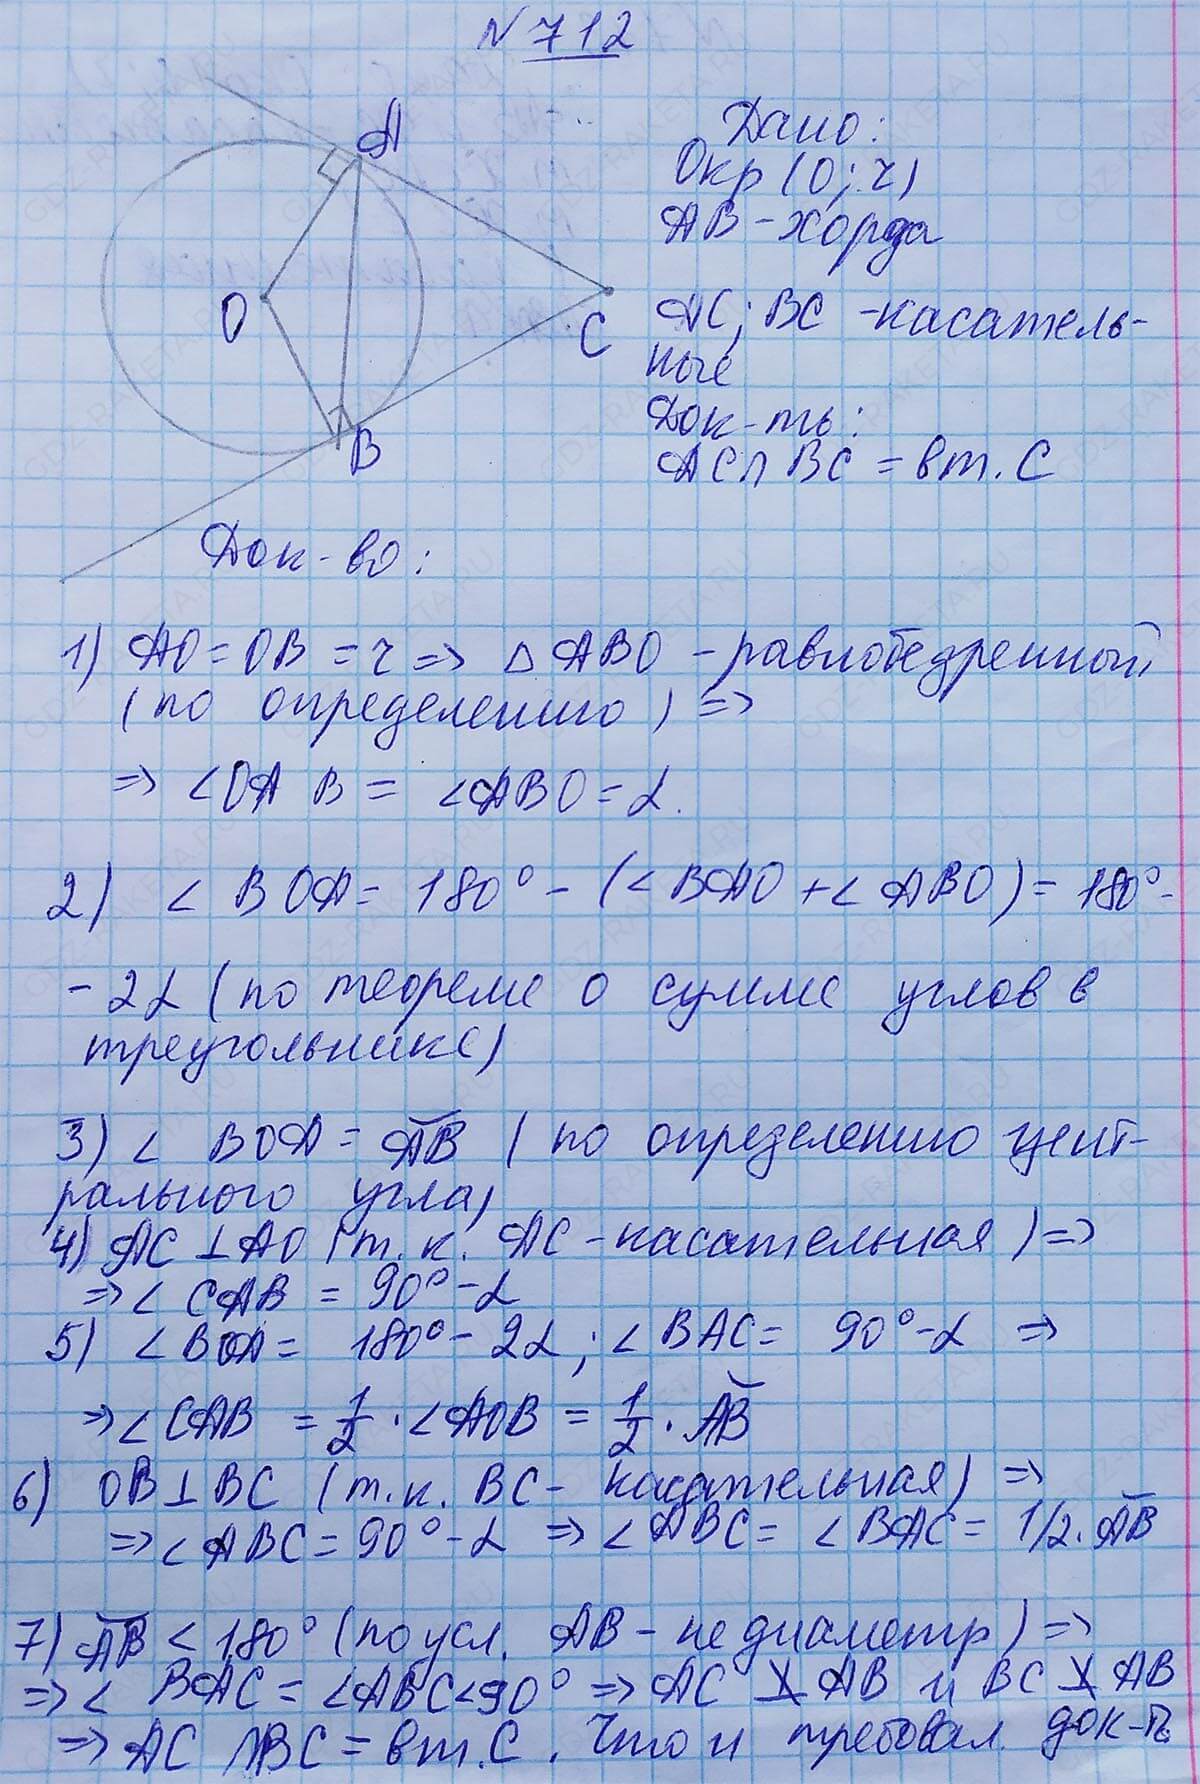 N 712
A
O
C
B
Дано:
Окр (O; r)
AB - хорда
AC; BC - касатель-
ные
Док-ть:
AC ∩ BC = в т. C
Док-во:
1) AO = OB = r => △ ABO - равнобедренный
(по определению) =>
=> ∠OAB = ∠ABO = α.
2) ∠BOA = 180° - (∠BAO + ∠ABO) = 180° -
- 2α (по теореме о сумме углов в
треугольнике)
3) ∠BOA = ◡AB (по определению цент-
рального угла)
4) AC ⊥ AO (т. к. AC - касательная) =>
=> ∠CAB = 90° - α
5) ∠BOA = 180° - 2α; ∠BAC = 90° - α =>
=> ∠CAB = 1/2 · ∠AOB = 1/2 · ◡AB
6) OB ⊥ BC (т. к. BC - касательная) =>
=> ∠ABC = 90° - α => ∠ABC = ∠BAC = 1/2 · ◡AB
7) ◡AB < 180° (по усл. AB - не диаметр) =>
=> ∠BAC = ∠ABC < 90° => AC ⊥̸ AB и BC ⊥̸ AB
=> AC ∩ BC = в т. C. Что и требовал. док-ть